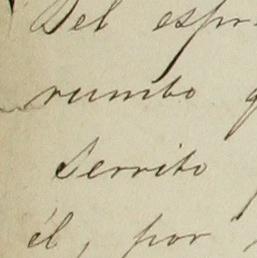 Del espr
rumbo q
Serrito
él, por